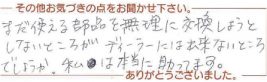 その他お気づきの点をお聞かせ下さい。
まだ使える部品を無理に交換しようと
しないところが、ディーラーには出来ないところ
でしょうか。私は本当に助ってます。
ありがとうございました。